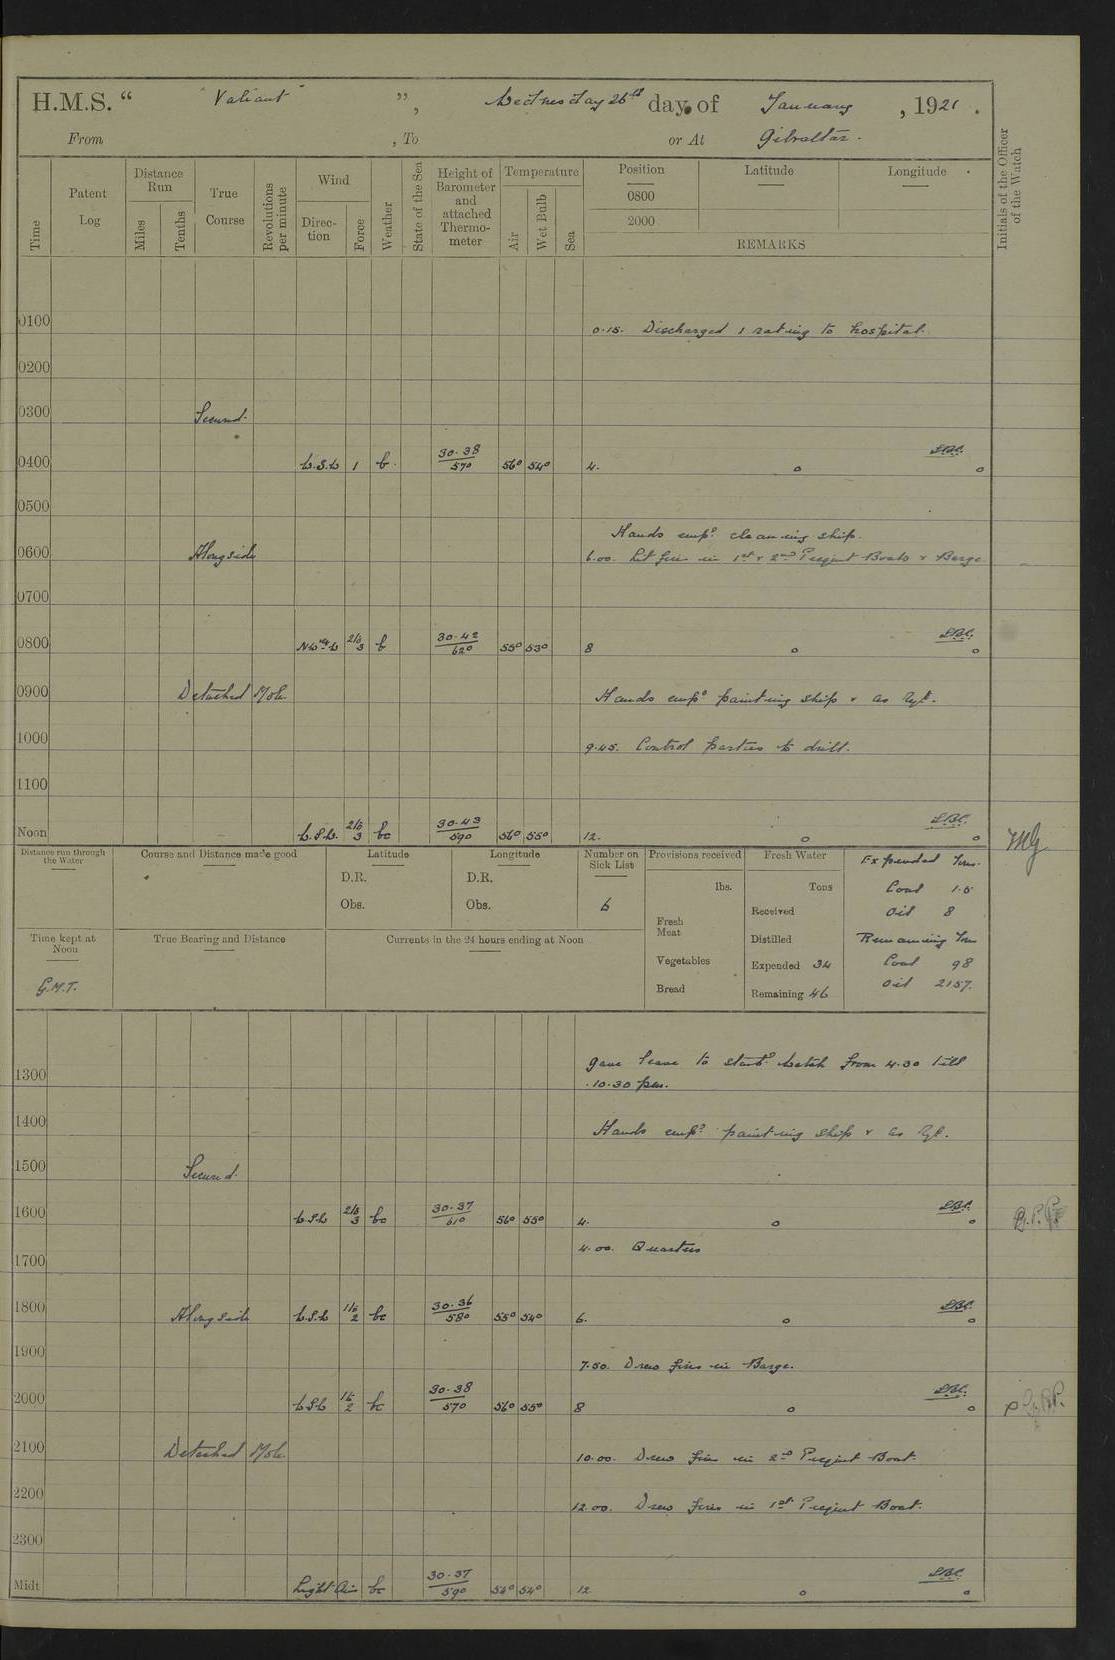 H.M.S. "Valiant", Wednesday 26th day of January, 1921.
From , To or At Gibraltar.
Time
Patent Log
Distance Run
Miles
Tenths
True Course
Revolutions per minute
Wind
Direction
Force
Weather
State of the Sea
Height of Barometer and attached Thermometer
Temperature
Air
Wet Bulb
Sea
Position
0800
2000
Latitude
Longitude
REMARKS
Initials of the Officer of the Watch
0100 0.15. Discharged 1 rating to hospital.
0200
0300 Secured.
0400 W.S.W 1 b. 30.38/57° 56° 54° 4.
0500
Hands empd. cleaning ship.
0600 Alongside 6.00. Lit fires in 1st & 2nd Picquet Boats & Barge
0700
0800 2/3 b 30.42/62° 55° 53° 8
0900 Detached Mole. Hands empd painting ship & as reqt.
1000 9.45. Control parties to drill.
1100
Noon W.S.W. 2/3 bc 30.43/59° 56° 55° 12.
Distance run through the Water
Course and Distance made good
Latitude
D.R.
Obs.
Longitude
D.R.
Obs.
Number on Sick List
6
Provisions received
lbs.
Fresh Meat
Vegetables
Bread
Fresh Water
Tons
Received
Distilled
Expended 34
Remaining 46
Expended Tons.
Coal 1.5
Oil 8
Remaining Tons
Coal 98
Oil 2157.
Time kept at Noon
G.M.T.
True Bearing and Distance
Currents in the 24 hours ending at Noon
Gave leave to Starbd Watch from 4.30 till
1300 10.30 pm.
1400 Hands empd painting ship & as reqt.
1500 Secured.
1600 W.S.W 2/3 bc 30.37/61° 56° 55° 4.
4.00. Quarters
1700
1800 Alongside W.S.W 1/2 bc 30.36/58° 55° 54° 6.
1900 7.50. Drew fires in Barge.
2000 W.S.W 1/2 bc 30.38/57° 56° 55° 8
2100 Detached Mole. 10.00. Drew fires in 2nd Picquet Boat.
2200 12.00. Drew fires in 1st Picquet Boat.
2300
Midt Light Airs bc 30.37/59° 54° 12